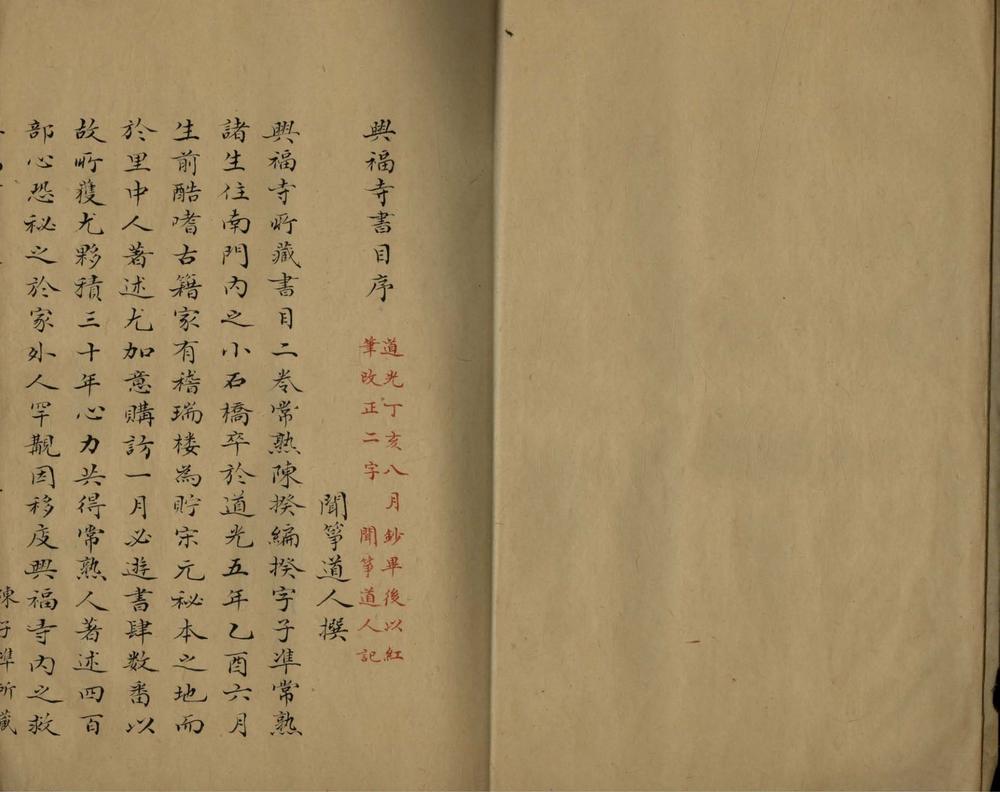 興福寺書目序
道光丁亥八月鈔畢後以紅
筆改正二字 聞箏道人記
聞箏道人撰
興福寺所藏書目二卷常熟陳揆編揆字子準常熟
諸生住南門內之小石橋卒於道光五年乙酉六月
生前酷嗜古籍家有稽瑞楼為貯宋元秘本之地而
於里中人著述尤加意購訪一月必遊書肆数番以
故所獲尤夥積三十年心力共得常熟人著述四百
部心恐秘之於家外人罕覯因移庋興福寺內之救
陳子準所藏